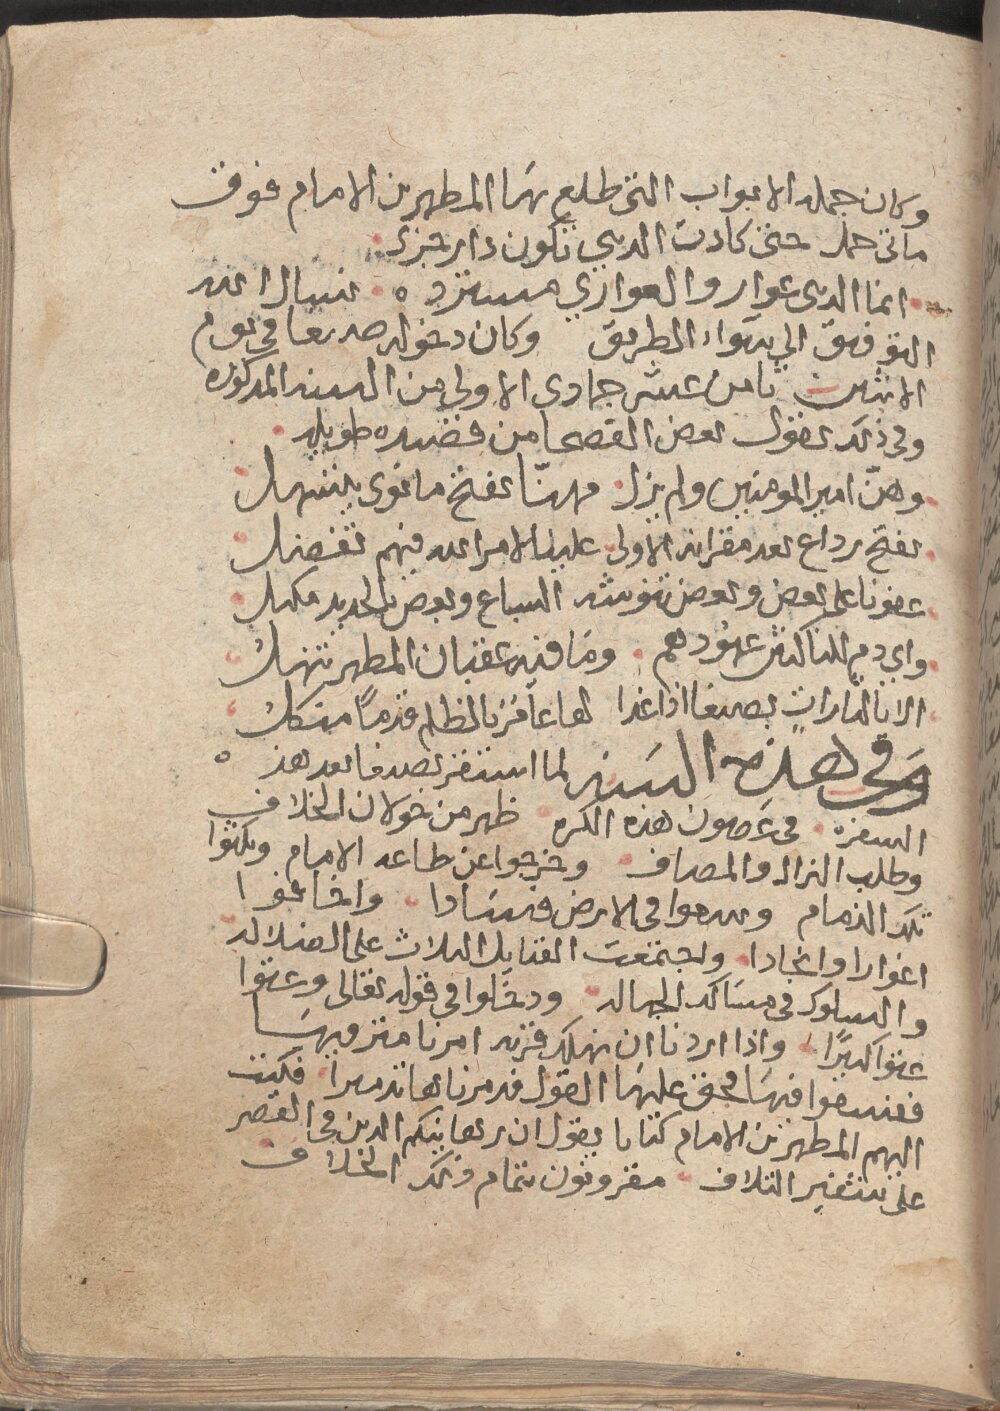 وكان جمله الابواب التي طلع بها المطهر بن الامام فوق
ماتى حمل حتى كادت الدنيا تكون دار جزى
انما الدنى عوار والعواري مسترد ه نسال الله
التوفيق الى سواء الطريق وكان دخوله صنعا في يوم
الاثنين ثامن عشر جمادى الاولى من السنه المذكوره
وفي ذلك يقول بعض الفصحا من قصيده طويله
وهنّ امير المومنين ولم يزل مهنّا بفتح ما نوى يتسهل
بفتح رداع بعد مقرانه الاولى علينا لامر الله فيهم تفضل
عفونا على بعض وبعض تنوشه السباع وبعض بالحديد مكبل
واي دم للناكثين عهودهم وما فيه عقبان المطهر تنهل
الا يالثارات بصنعا اذا غدا لها عافر بالظلم قدما منكل
وفي هذه السنه لما استقر بصنعا بعد هذه
السفره في غضون هذه الكره ظهر من خولان الخلاف
وطلب النزال والمصاف وخرجوا عن طاعه الامام ونكثوا
تلك الذمام وسعوا في الارض فسادا واخافوا
اغوارا وانجادا واجتمعت القبايل الثلاث على الضلاله
والسلوك في مسالك الجهاله ودخلوا في قوله تعالى وعتوا
عتوا كبيرًا واذا اردنا ان نهلك قريه امرنا مترفيها
ففسقوا فيها فحق عليها القول فدمرناها تدميرا فكتب
اليهم المطهر بن الامام كتابا يقول ان رهاينكم الذين في القصر
على شفير التلاف مقرونون بتمام ذلك الخلاف